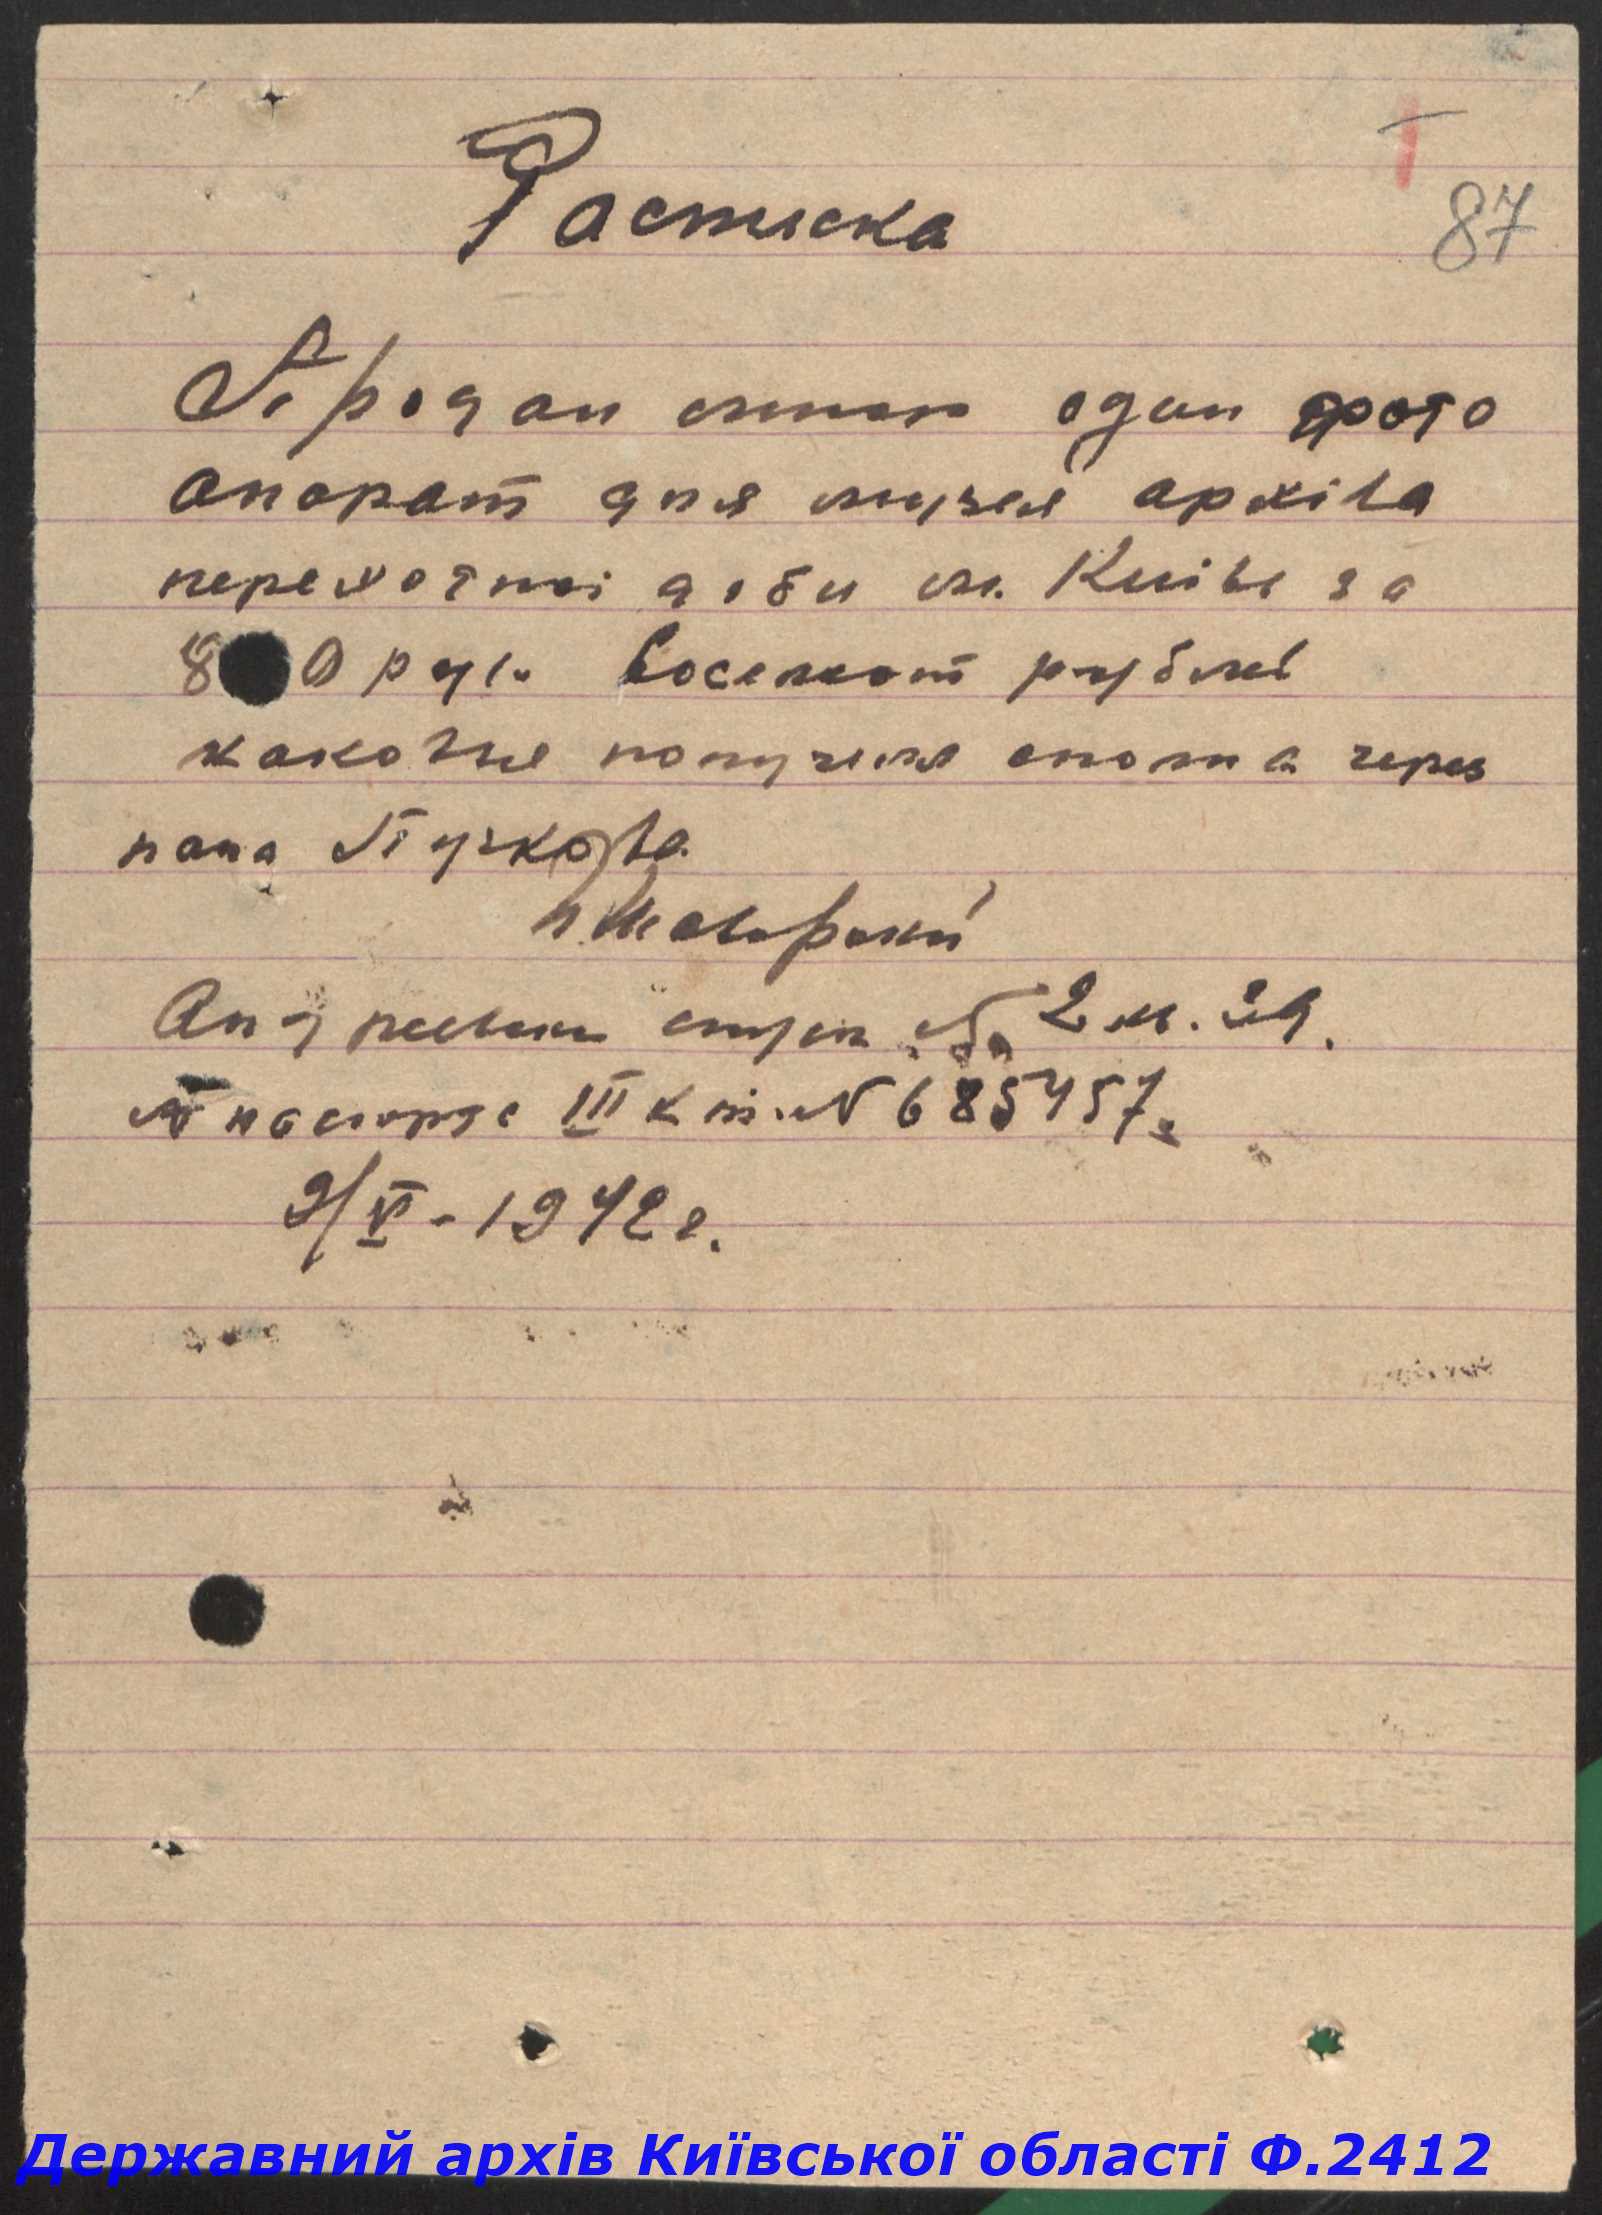 87
Расписка
Продан мною один фото
апарат для музея архіва
переходноі доби м. Києва за
8 0 руб. восемсот рублей
каковые получил сполна через
пана Пучкова
Андреевски спуск № 2 кв. 29.
№ паспорта III К т. N 685457.
9/VI - 1942 г.
Державний архів Київської області Ф.2412